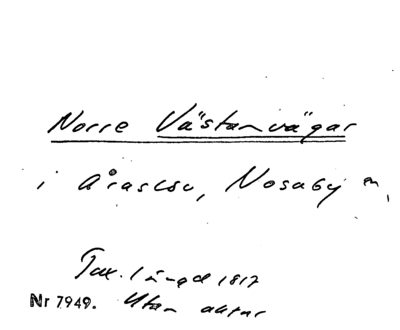 Norre Västanvägar
i Åraslöv, Nosaby sn,
Tax. längd 1817
Nr 7949. Utan aktnr